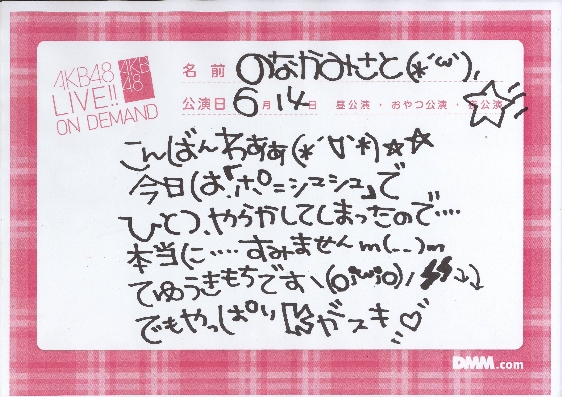 AKB48
LIVE!!
ON DEMAND
AKB
48
名前 のなかみさと(*´ω`),
公演日 6月14日 昼公演・おやつ公演・夜公演
こんばんわぁぁ(*´∀`*)☆☆
今日は、『ポニシュシュ』で
ひとつ、やらかしてしまったので‥‥
本当に‥‥すみませんm(_ _)m
てゆうきもちです
でもやっぱり がスキ♡
DMM.com